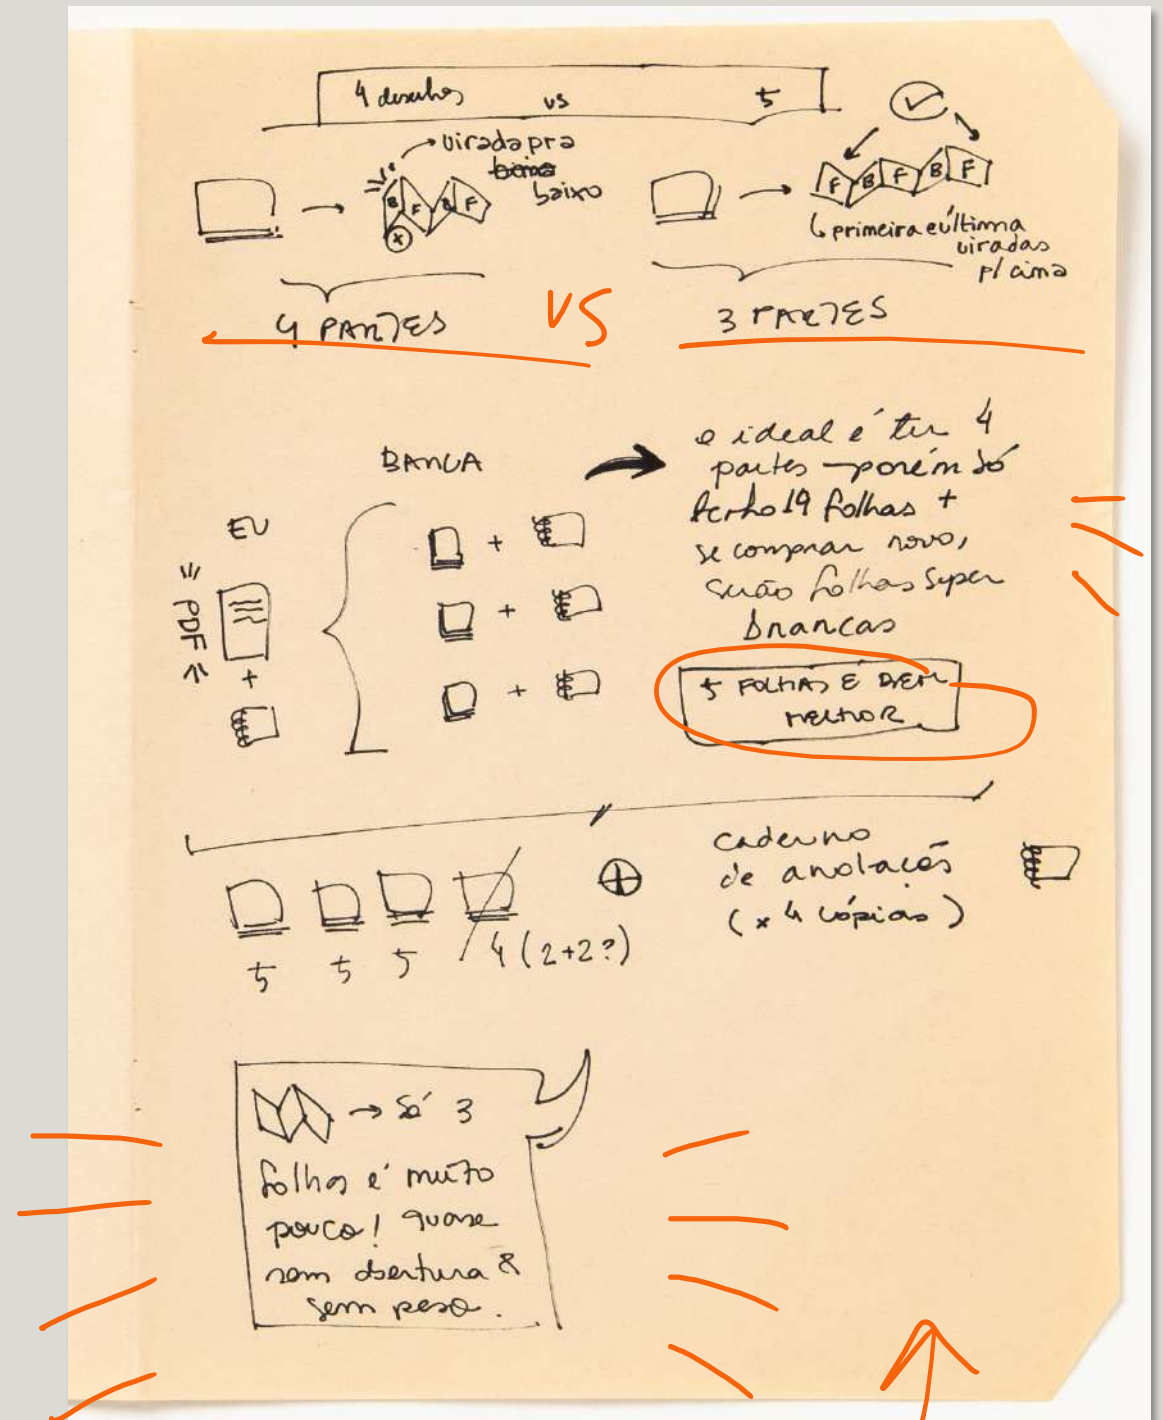 4 desenhos vs 5
virada pra
baixo
B F B F
x
F B F B F
primeira e última
viradas
p/ cima
4 PARTES
VS
3 PARTES
BANCA
EU
PDF
+
+
+
+
o ideal é ter 4
partes → porém só
tenho 19 folhas +
se comprar novo,
serão folhas super
brancas
5 FOLHAS É BEM
MELHOR
5 5 5 4 (2+2?)
+
caderno
de anotacões
(x 4 cópias)
→ Só 3
folhas é muito
pouco! quase
sem abertura &
sem peso.